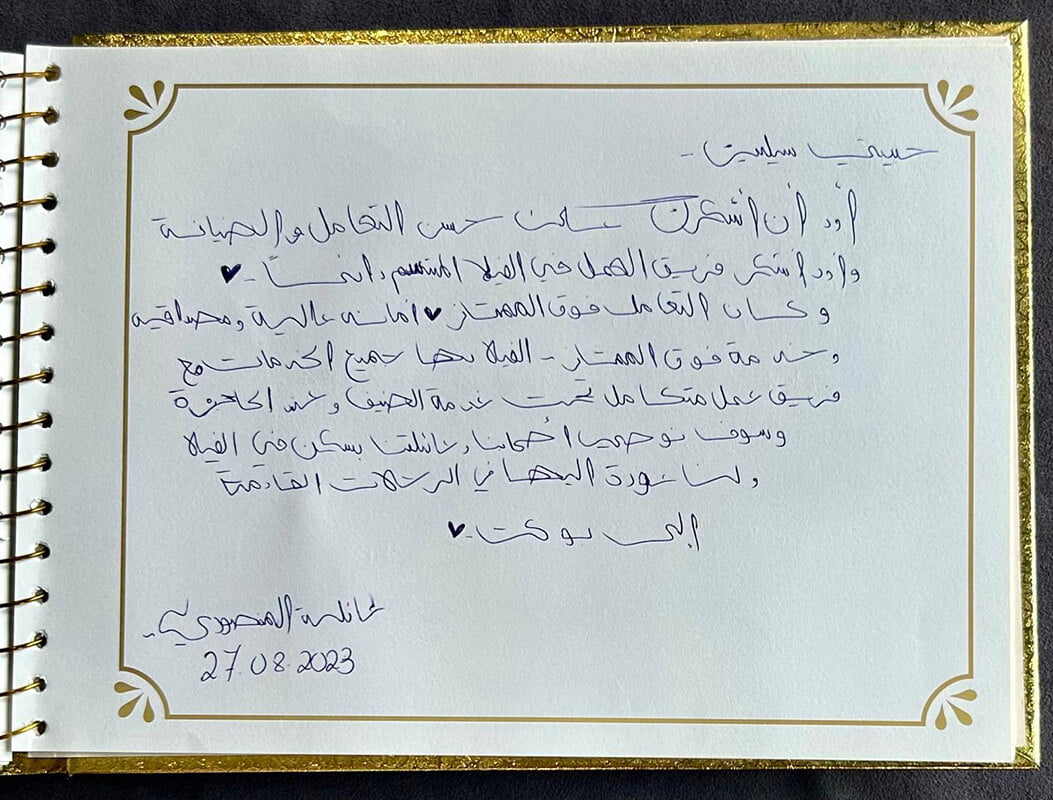 حبيبتي سيليين -
أود أن أشكرك على حسن التعامل والضيافة
وأود أشكر فريق العمل في الفيلا المبتسم دائماً - ♥
وكان التعامل فوق الممتاز ♥ أمانه عالية ومصداقيه
وخدمة فوق الممتاز - الفيلا بها جميع الخدمات مع
فريق عمل متكامل تحت خدمة الضيف وعند الحاجة
وسوف نوصي أصحابنا وعائلتنا بسكن في الفيلا
ولنا عودة اليها في الرحلات القادمة
إلى بوكت - ♥
عائلة المنصوري -
27.08.2023